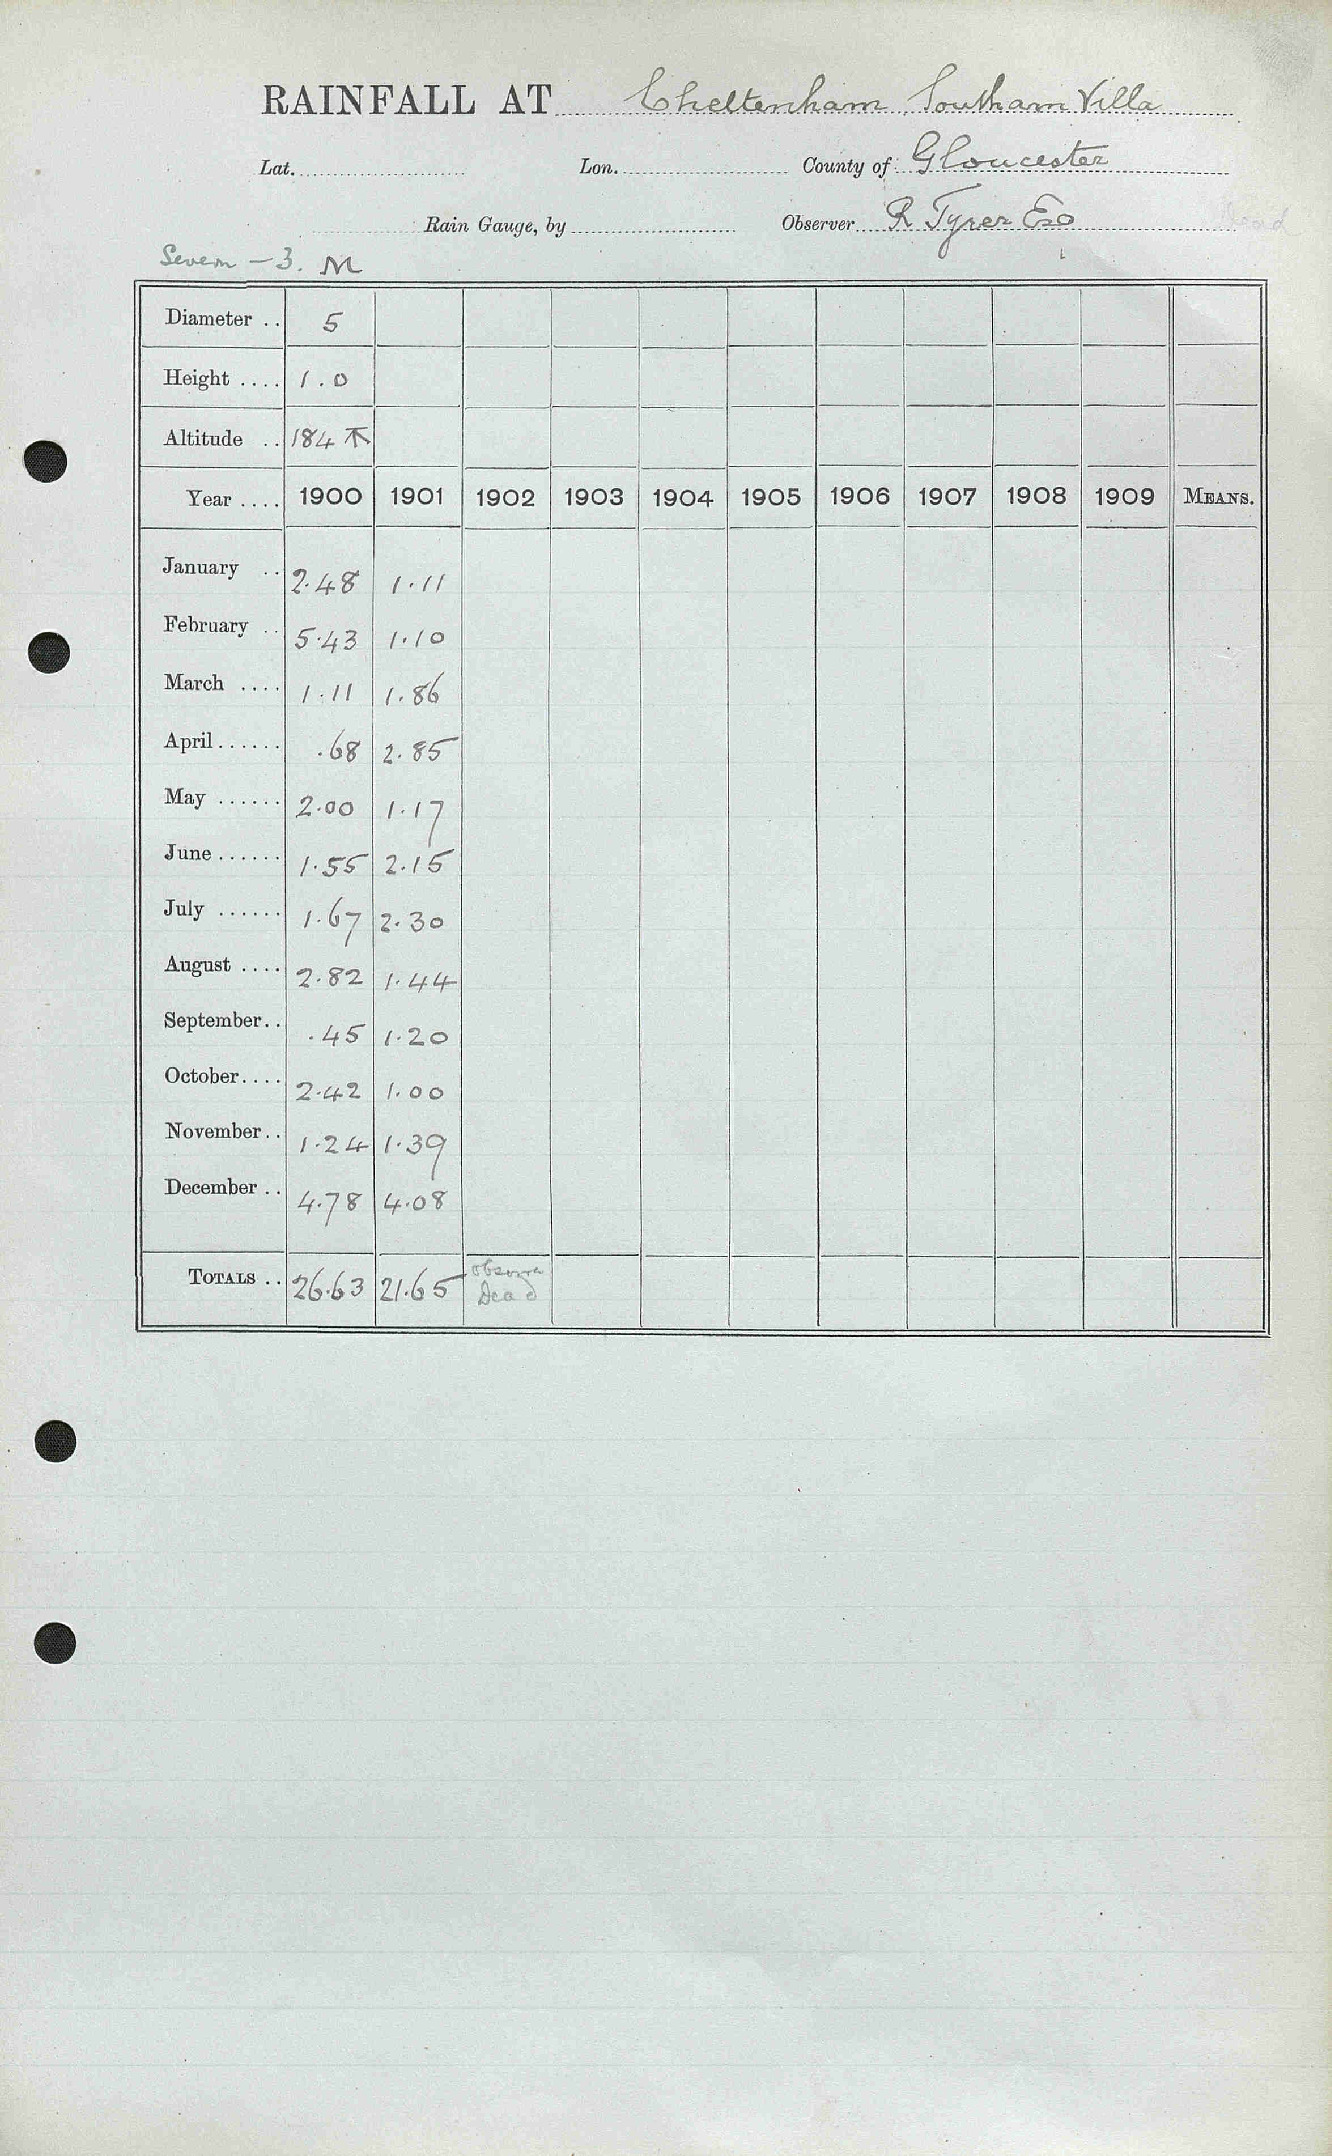 RAINFALL AT Cheltenham, Southam Villa
Lat. Lon. County of Gloucester
Rain Gauge, by Observer R Tyrer Esq Dead
Severn - 3. M
Diameter .. 5
Height .... 1.0
Altitude .. 184
Year .... 1900 1901 1902 1903 1904 1905 1906 1907 1908 1909 MEANS.
January .. 2.48 1.11
February .. 5.43 1.10
March .... 1.11 1.86
April ...... .68 2.85
May ...... 2.00 1.17
June ...... 1.55 2.15
July ...... 1.67 2.30
August .... 2.82 1.44
September .. .45 1.20
October .... 2.42 1.00
November .. 1.24 1.39
December .. 4.78 4.08
TOTALS .. 26.63 21.65 Dead